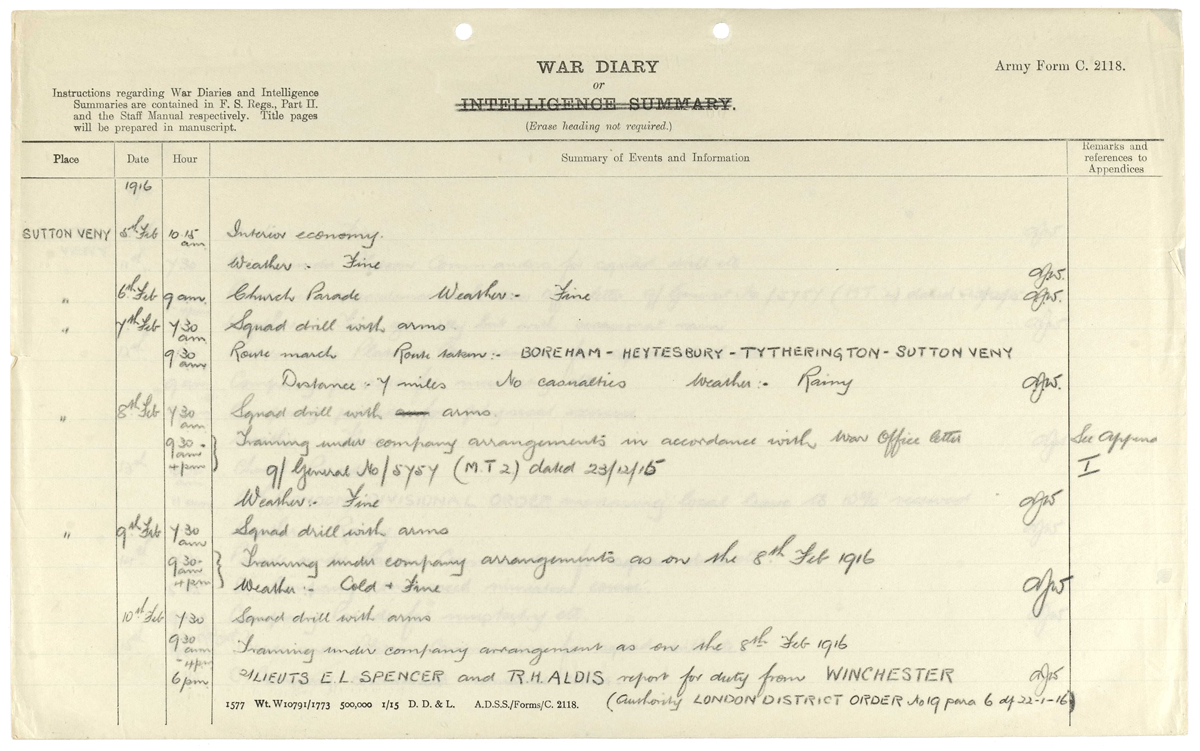 WAR DIARY
or
INTELLIGENCE SUMMARY.
(Erase heading not required.)
Army Form C. 2118.
Instructions regarding War Diaries and Intelligence
Summaries are contained in F. S. Regs., Part II.
and the Staff Manual respectively. Title pages
will be prepared in manuscript.
Place Date Hour Summary of Events and Information Remarks and references to Appendices
1916
SUTTON VENY 5th Feb 10 15 am Interior economy.
Weather - Fine
" 6th Feb 9 am. Church Parade Weather:- Fine
" 7th Feb 7 30 am Squad drill with arms.
9 30 am Route march Route taken:- BOREHAM - HEYTESBURY - TYTHERINGTON - SUTTON VENY
Distance - 7 miles No casualties Weather:- Rainy
" 8th Feb 7 30 am Squad drill with arms.
9 30 am - 4 pm Training under company arrangements in accordance with War Office letter See Append I
9/General No/5757 (M.T 2) dated 23/12/15
Weather:- Fine
" 9th Feb 7 30 am Squad drill with arms
9 30 - am 4 pm Training under company arrangements as on the 8th Feb 1916
Weather:- Cold + Fine
10th Feb 7 30 Squad drill with arms
9 30 am - 4 pm Training under company arrangement as on the 8th Feb 1916
6 pm 2/LIEUTS E.L SPENCER and R.H. ALDIS report for duty from WINCHESTER
(Authority LONDON DISTRICT ORDER No 19 para 6 of 22-1-16)
1577 Wt. W10791/1773 500,000 1/15 D. D. & L. A.D.S.S./Forms/C. 2118.